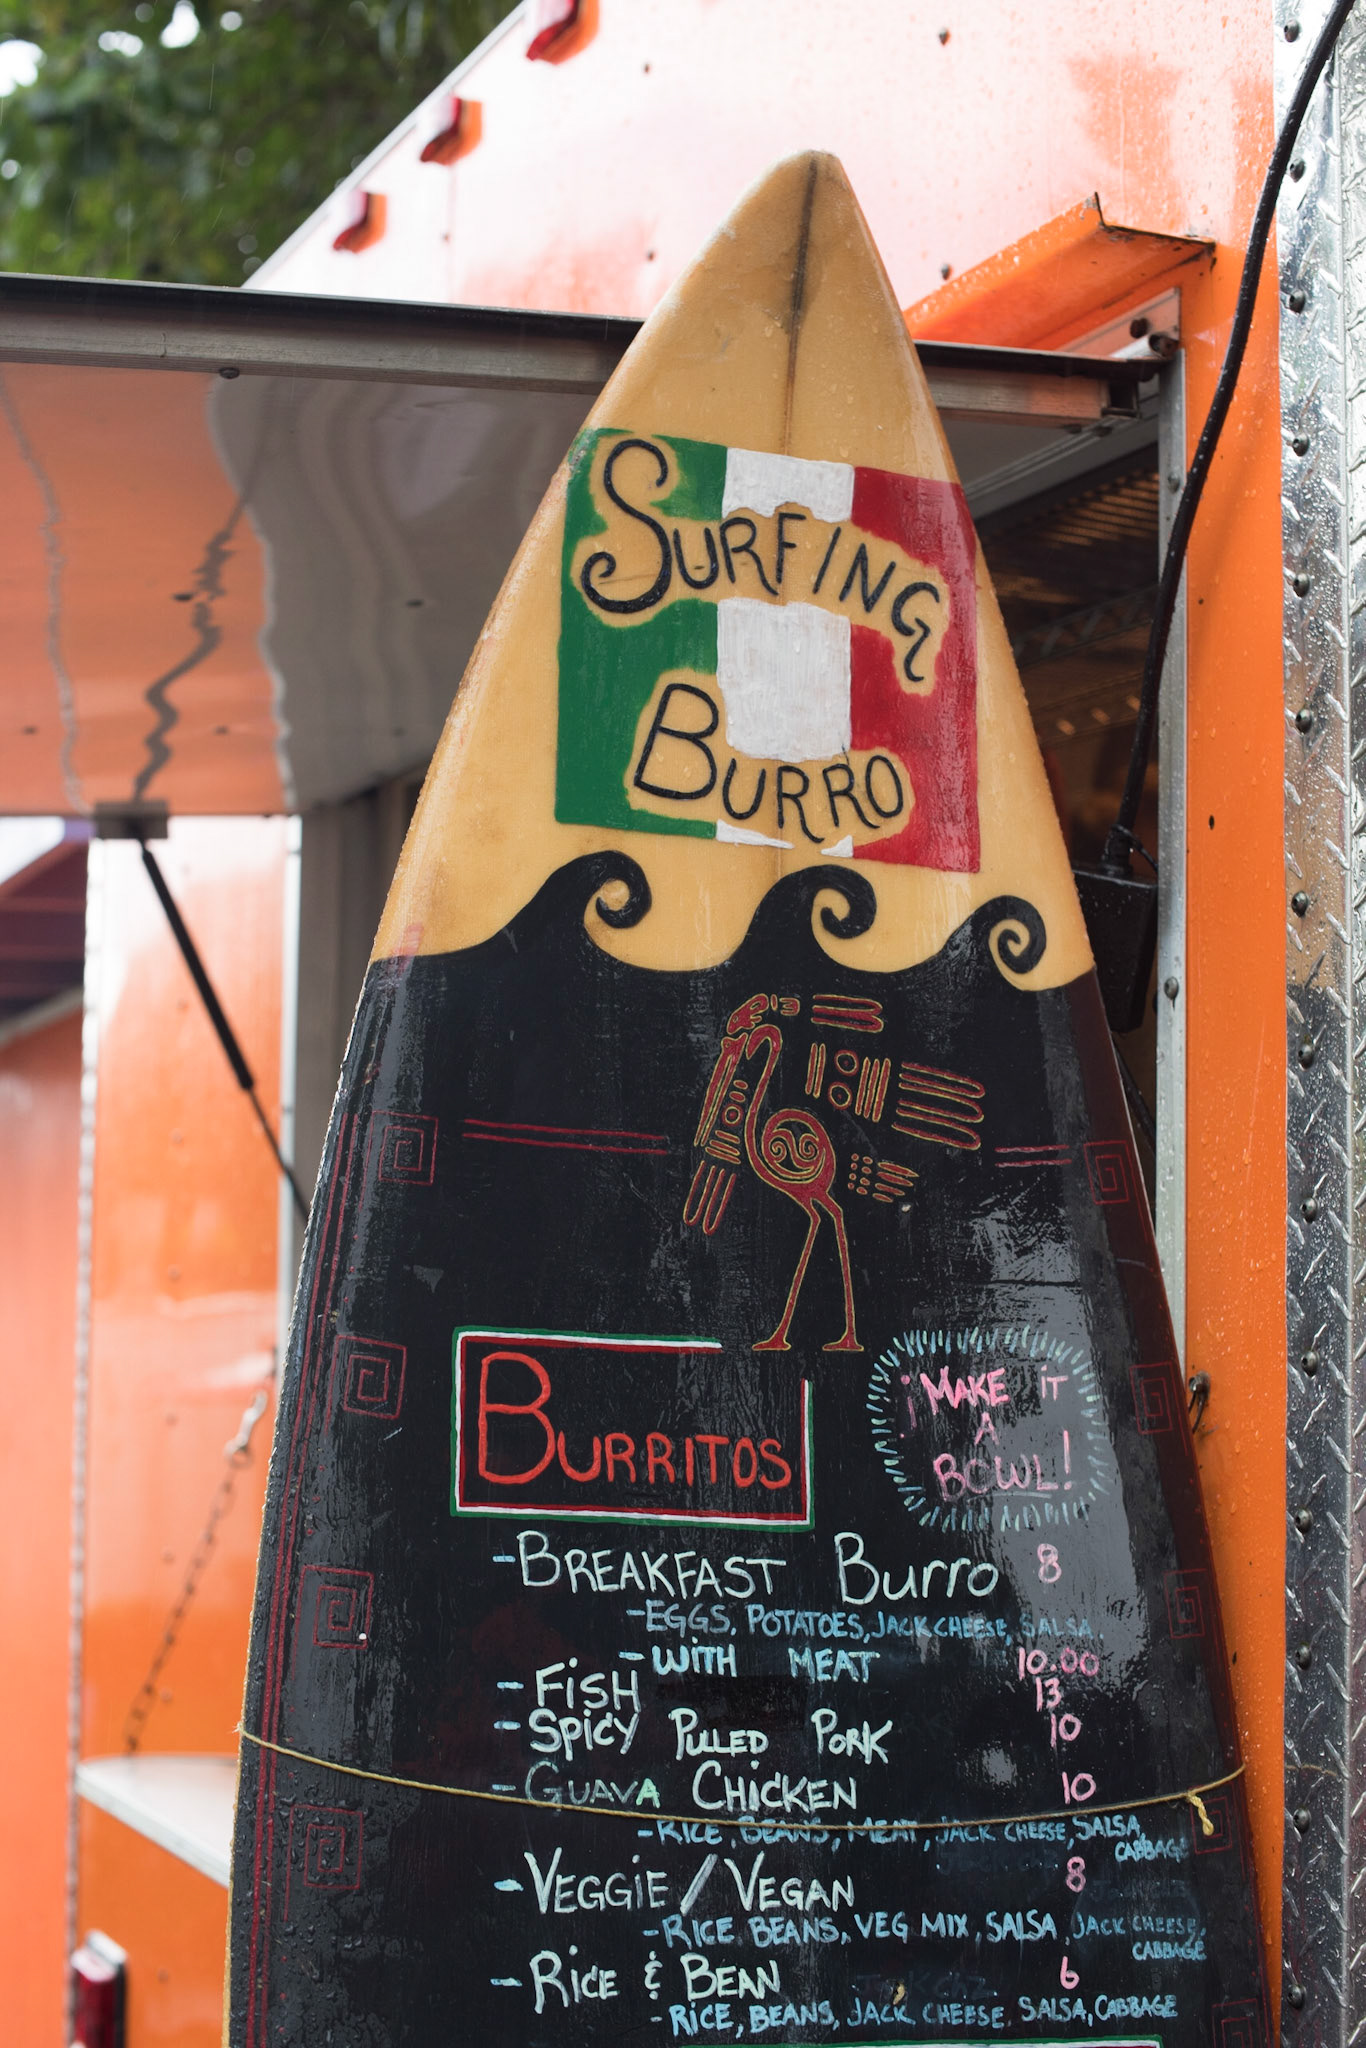 SURFING
BURRO
BURRITOS
¡MAKE iT
A
BOWL!
-BREAKFAST Burro 8
-EGGS, POTATOES, JACK CHEESE, SALSA.
-WiTH MEAT 10.00
-FiSH 13
-SPiCY PULLED PORK 10
-GUAVA CHiCKEN 10
-RICE, BEANS, MEAT, JACK CHEESE, SALSA,
CABBAGE
-VEGGiE/VEGAN 8
-RICE, BEANS, VEG MIX, SALSA, JACK CHEESE,
CABBAGE
-RiCE & BEAN 6
-RICE, BEANS, JACK CHEESE, SALSA, CABBAGE